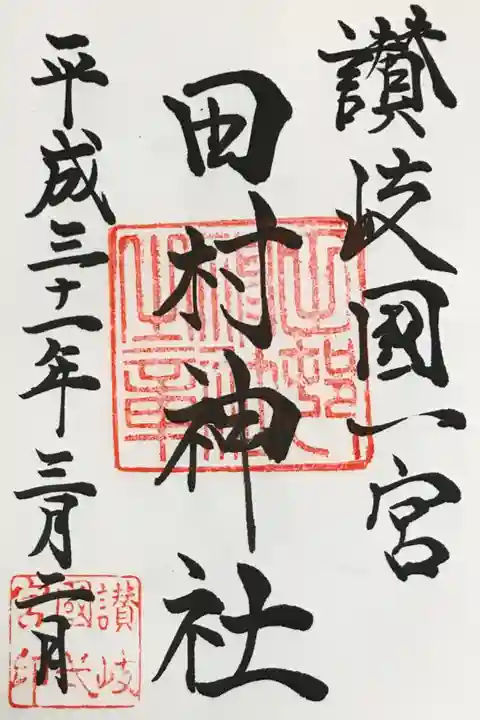 讚岐國一宮
田村神社
平成三十一年三月二日
讃岐
國
宮印